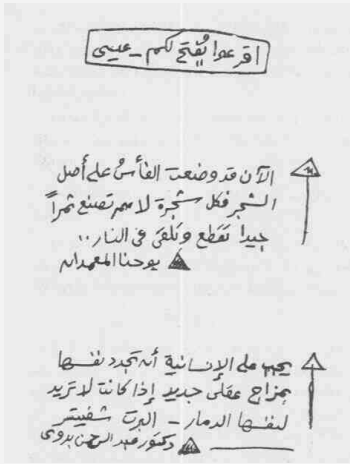 اقرعوا يُفتح لكم - عيسى
الآن قد وضعت الفأسُ على أصل
الشجر فكل شجرة لا تصنع ثمراً
جيدا تقطع وتلقى في النار ..
يوحنا المعمدان
يجب على الإنسانية أن تجدد نفسها
بمزاج عقلى جديد إذا كانت لا تريد
لنفسها الدمار - البرت شفيتسر
دكتور عبد الرحمن بدوى